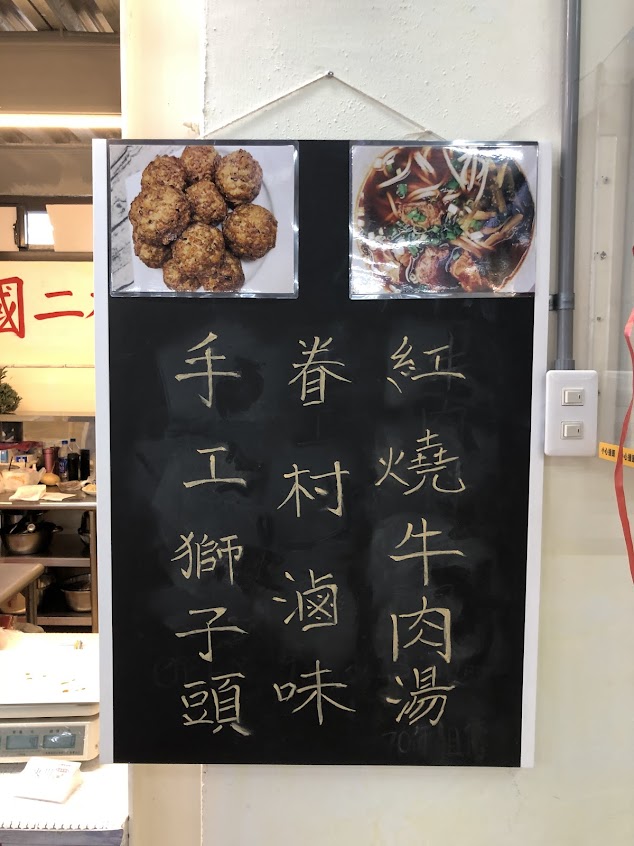 紅燒牛肉湯
眷村滷味
手工獅子頭
國二
小心牆面